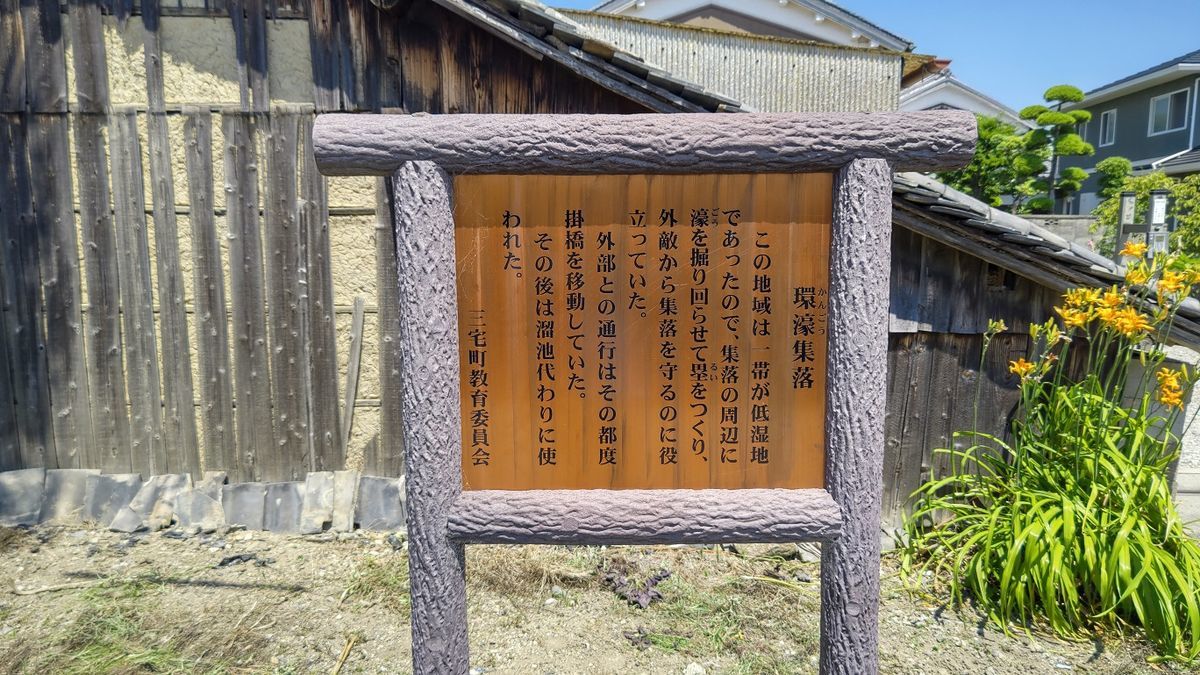 環濠集落
かんごう
この地域は一帯が低湿地
であったので、集落の周辺に
濠を掘り回らせて塁をつくり、
ごう
るい
外敵から集落を守るのに役
立っていた。
外部との通行はその都度
掛橋を移動していた。
その後は溜池代わりに使
われた。
三宅町教育委員会